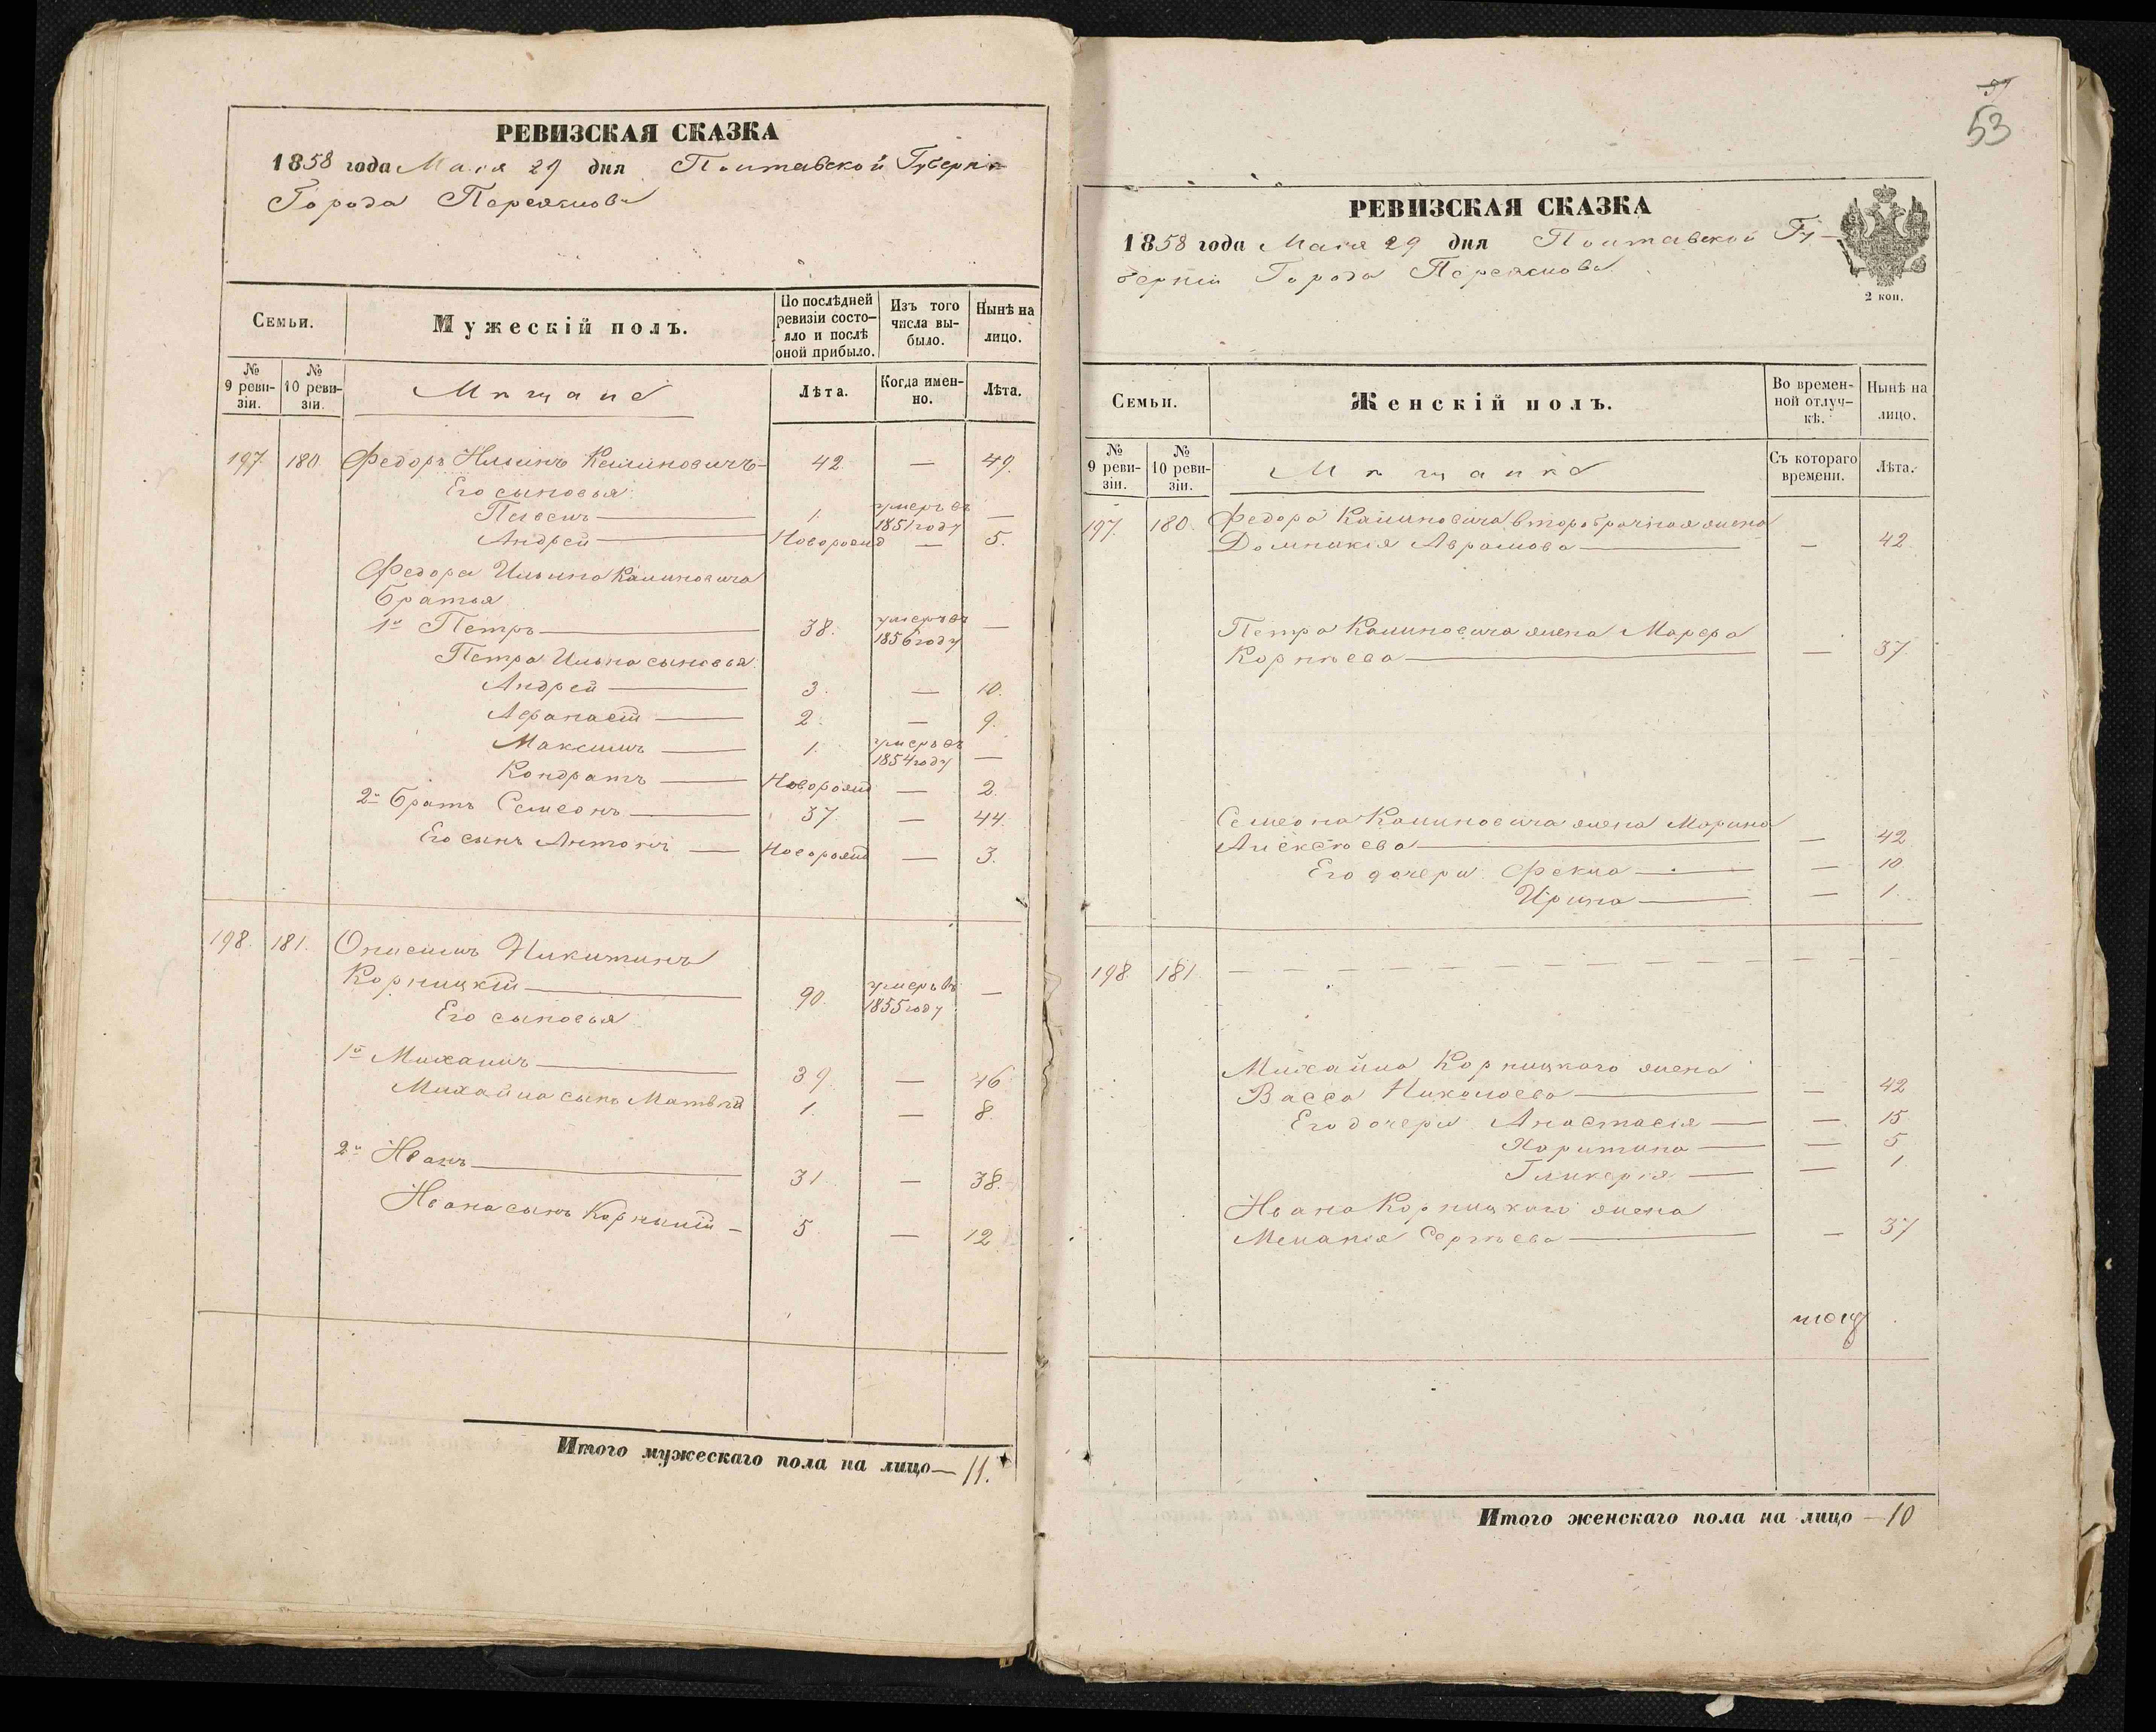 РЕВИЗСКАЯ СКАЗКА
1858 года Маія 29 дня Полтавской Губерніи
Города Переяслова
Семьи.
Мужескій полъ.
По послѣдней ревизіи состо-
яло и послѣ
оной прибыло.
Изъ того
числа вы-
было.
Нынѣ на
лицо.
№
9 реви-
зіи.
№
10 реви-
зіи.
Мѣщане
Лѣта.
Когда имен-
но.
Лѣта.
197. 180. Федоръ Ильинъ Калиновичъ 42. — 49.
Его сыновья:
Павелъ 1. умеръ въ 1851 году —
Андрей Новорожд — 5.
Федора Ильина Калиновича
братья
1й Петръ 38. умеръ въ 1856 году —
Петра Ильина сыновья:
Андрей 3. — 10.
Афанасій 2. — 9.
Максимъ 1. умеръ въ 1854 году —
Кондратъ Новорожд — 2.
2й братъ Семеонъ 37 — 44.
Его сынъ Антоній Новорожд — 3.
198. 181. Онисимъ Никитинъ
Корницкій 90. умеръ въ 1855 году —
Его сыновья
1й Михаилъ 39 — 46
Михайла сынъ Матвѣй 1. — 8.
2й Иванъ 31 — 38.
Ивана сынъ Корнилій 5 — 12
Итого мужескаго пола на лицо — 11.
53
РЕВИЗСКАЯ СКАЗКА
1858 года Маія 29 дня Полтавской Гу-
берніи Города Переяслова
2 коп.
Семьи.
Женскій полъ.
Во времен-
ной отлуч-
кѣ.
Нынѣ на
лицо.
№
9 реви-
зіи.
№
10 реви-
зіи.
Мѣщанке
Съ котораго
времени.
Лѣта.
197. 180. Федора Калиновича второбрачная жена
Домникія Аврамова — 42
Петра Калиновича жена Марфа
Корнѣева — 37.
Семеона Калиновича жена Марина
Алексѣева — 42
Его дочери Фекла — 10
Ирина — 1.
198. 181.
Михайла Корницкого жена
Васса Николаева — 42
Его дочери Анастасія — 15
Харитина — 5
Гликерія — 1.
Ивана Корницкого жена
Меланія Сергѣева — 37
Итого женскаго пола на лицо — 10